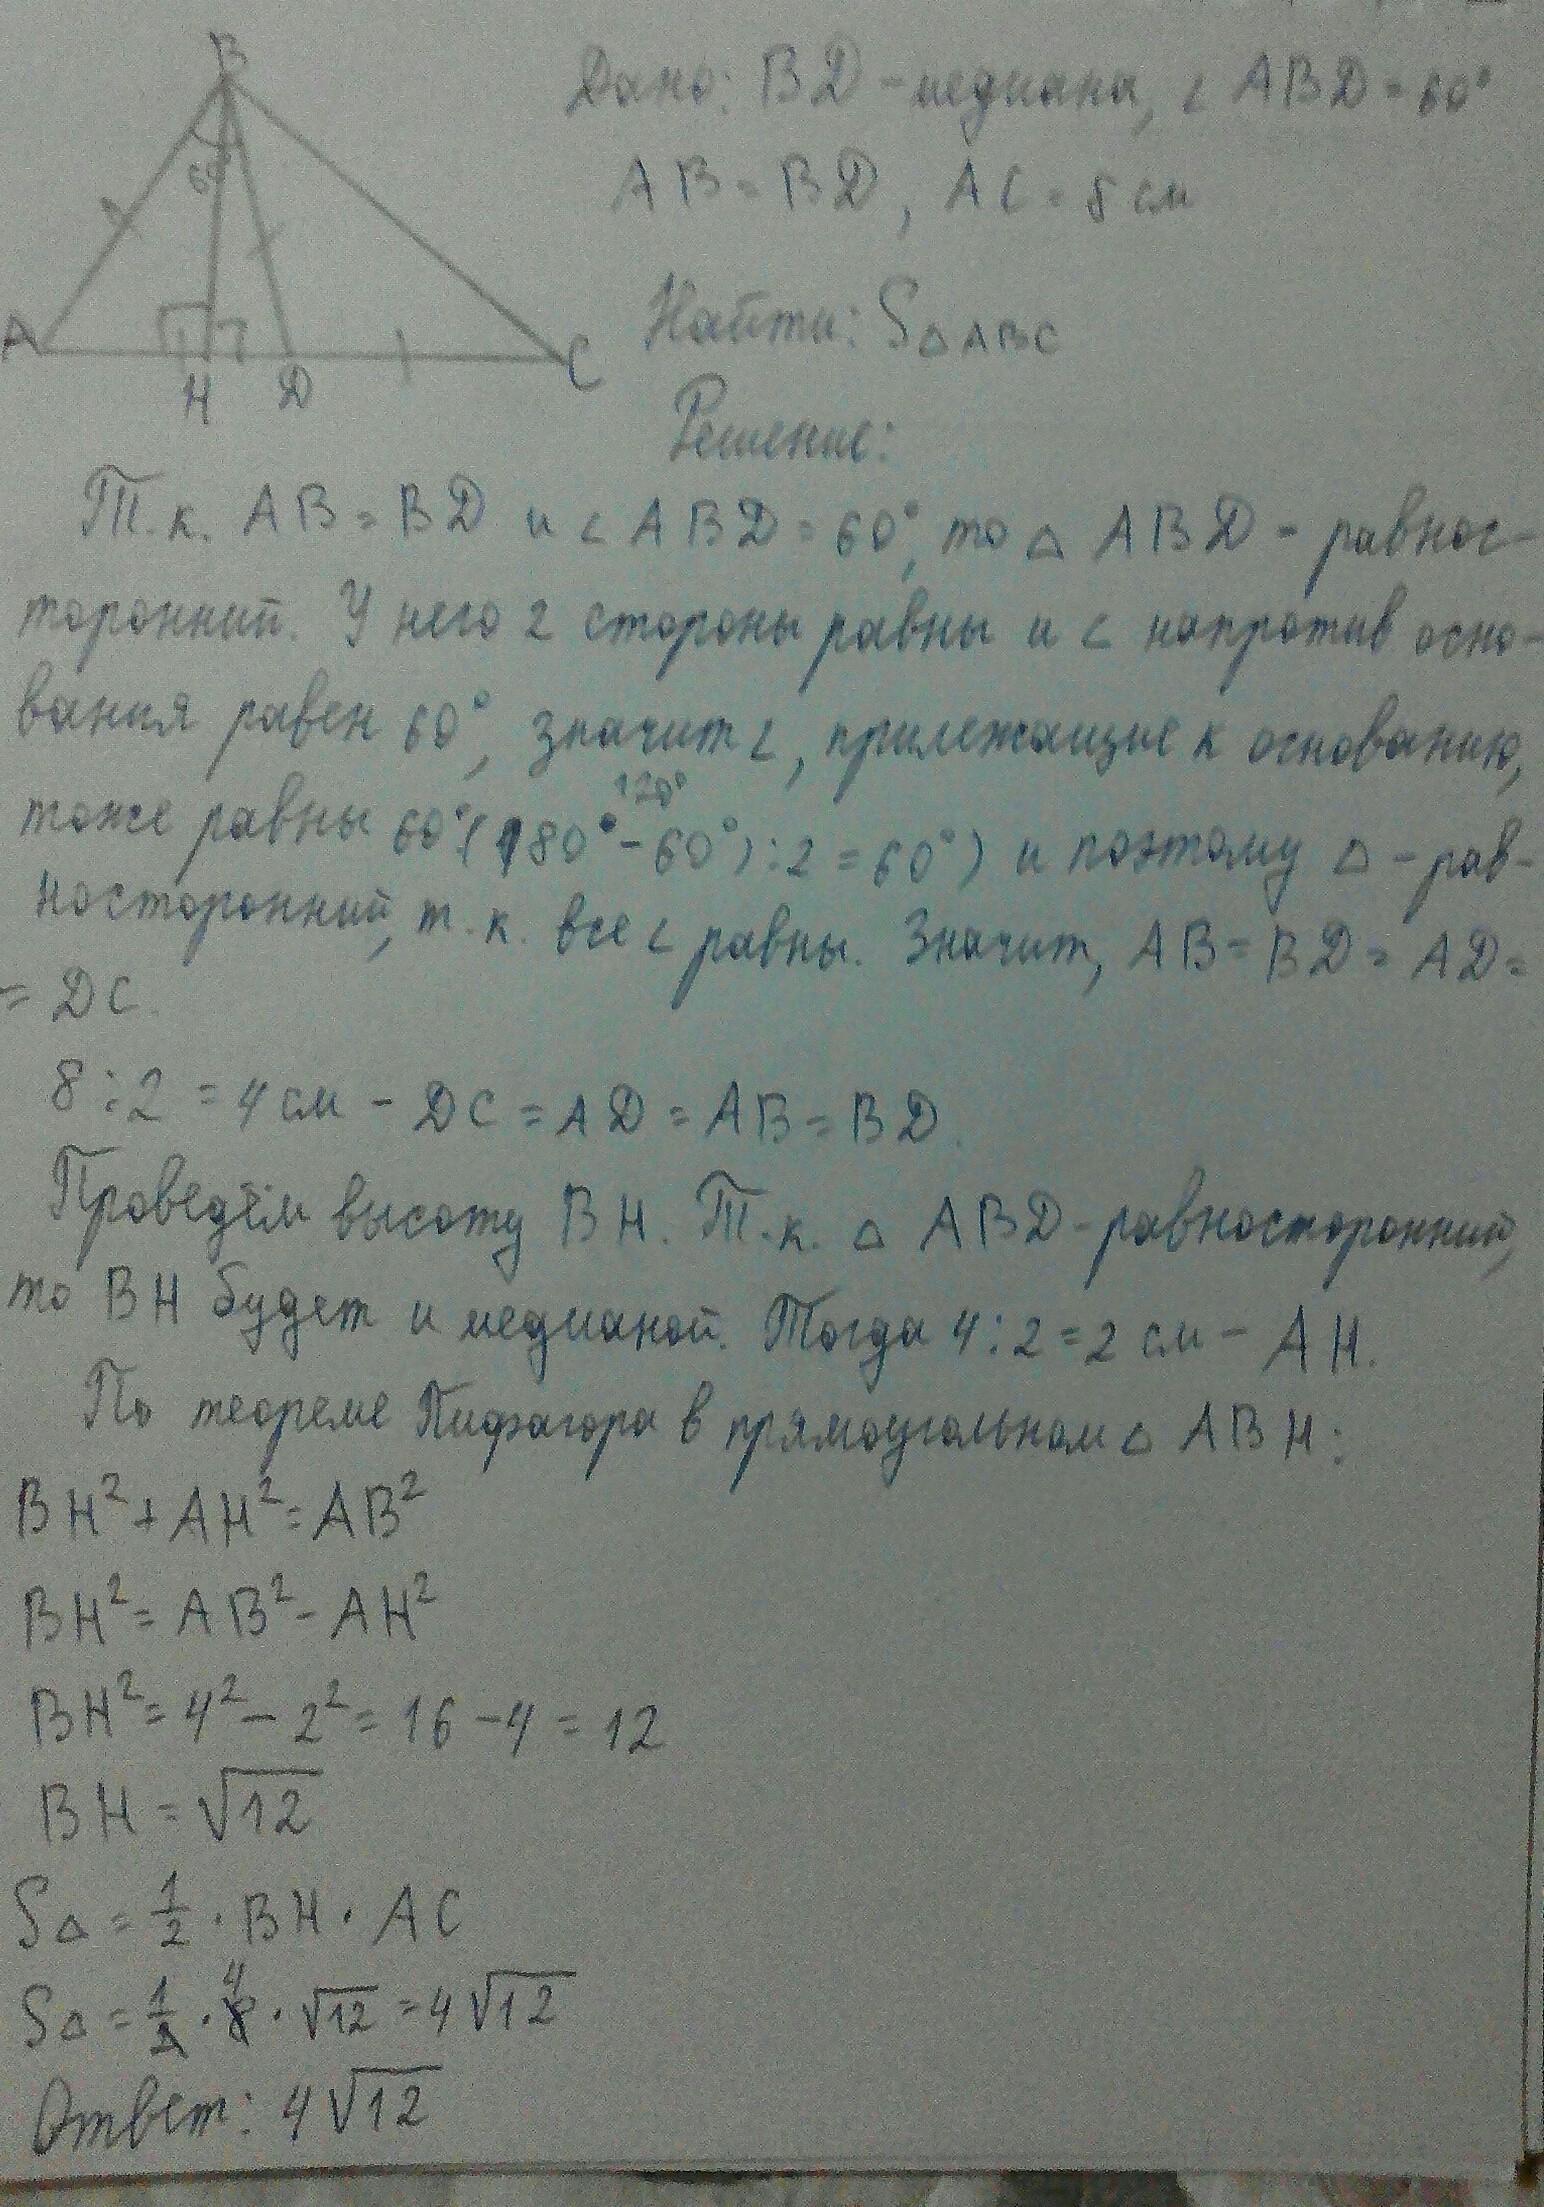 B
60°
A
H
D
C
Дано: BD - медиана, ∠ ABD = 60°
AB = BD, AC = 8 см
Найти: S△ABC
Решение:
Т.к. AB = BD и ∠ ABD = 60°, то △ ABD - равнос-
торонний. У него 2 стороны равны и ∠ напротив осно-
вания равен 60°, значит ∠, прилежащие к основанию,
120°
тоже равны 60° (180° - 60°) : 2 = 60°) и поэтому △ - рав-
носторонний, т.к. все ∠ равны. Значит, AB = BD = AD =
= DC.
8 : 2 = 4 см - DC = AD = AB = BD.
Проведём высоту BH. Т.к. △ ABD - равносторонний,
то BH будет и медианой. Тогда 4 : 2 = 2 см - AH.
По теореме Пифагора в прямоугольном △ ABH:
BH² + AH² = AB²
BH² = AB² - AH²
BH² = 4² - 2² = 16 - 4 = 12
BH = √12
S△ = 1/2 · BH · AC
4
S△ = 1/2 · 8 · √12 = 4√12
Ответ: 4√12